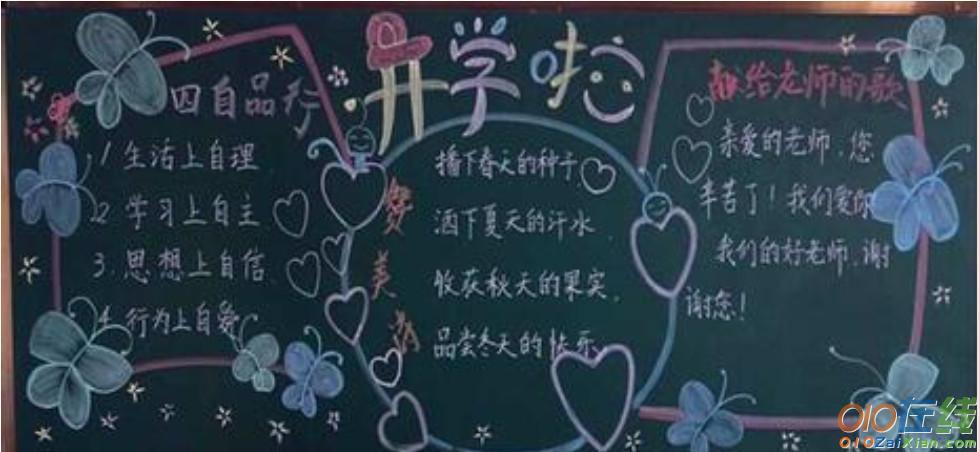 开学啦
四自品行
1 生活上自理
2 学习上自主
3. 思想上自信
4. 行为上自爱
播下春天的种子
洒下夏天的汗水
收获秋天的果实.
品尝冬天的快乐
梦
美
献给老师的歌
亲爱的老师,您
辛苦了!我们爱你
我们的好老师.谢
谢您!
010在线
010ZaiXian.com